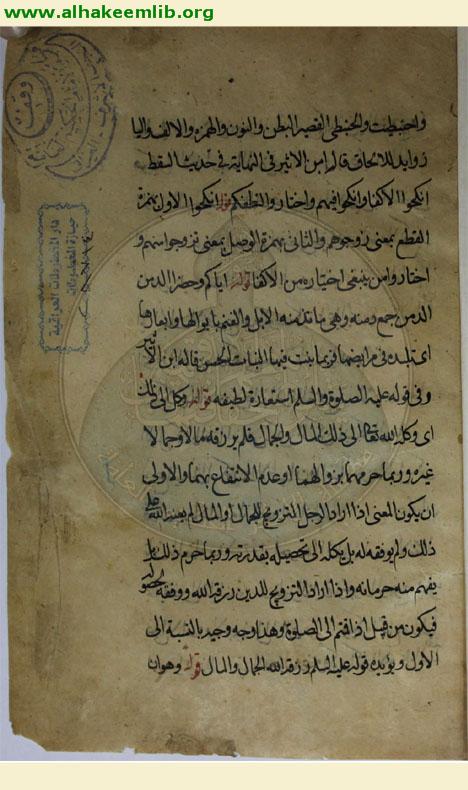 www.alhakeemlib.org
واحبنطيت والحبنطى القصير البطن والنون والهمزة والالف والياء
زوايد للالحاق قاله ابن الاثير فى النهاية فى حديث السقط
انكحوا الاكفا وانكحوا فيهم واختاروا لنطفكم قوله انكحوا الاول بهمزة
القطع بمعنى زوجوهم والثانى بهمزة الوصل بمعنى تزوجوا منهم و
اختاروا من ينبغى اختياره من الاكفا قوله اياكم وخضراء الدمن
الدمن جمع دمنة وهى ما تدمنه الابل والغنم بابوالها وابعارها
اى تلبده فى مرابضها فربما ينبت فيها النبات الحسن قاله ابن الاثير
وفى قوله عليه الصلوة والسلم استعارة لطيفه قوله وكل الى ذلك
اى وكله الله تعالى الى ذلك المال والجمال فلم يرزقه مالا وجمالا
غيره وربما حرمهما بزوالهما او عدم الانتفاع بهما والاولى
ان يكون المعنى اذا اراد الرجل التزويج للجمال او المال لم يعنه الله على
ذلك ولم يوفقه له بل يكله الى تحصيله بقدرته وربما حرم ذلك بل
يفهم منه حرمانه واذا اراد التزويج للدين رزقه الله ووفقه لحصوله
فيكون من قبيل اذا اقتم الى الصلوة وهذا وجه وجيه بالنسبة الى
الاول ويؤيده قوله عليه السلم رزقه الله الجمال والمال قوله وهوان
دار المخطوطات العراقية
حيازة المخطوطات
وقف